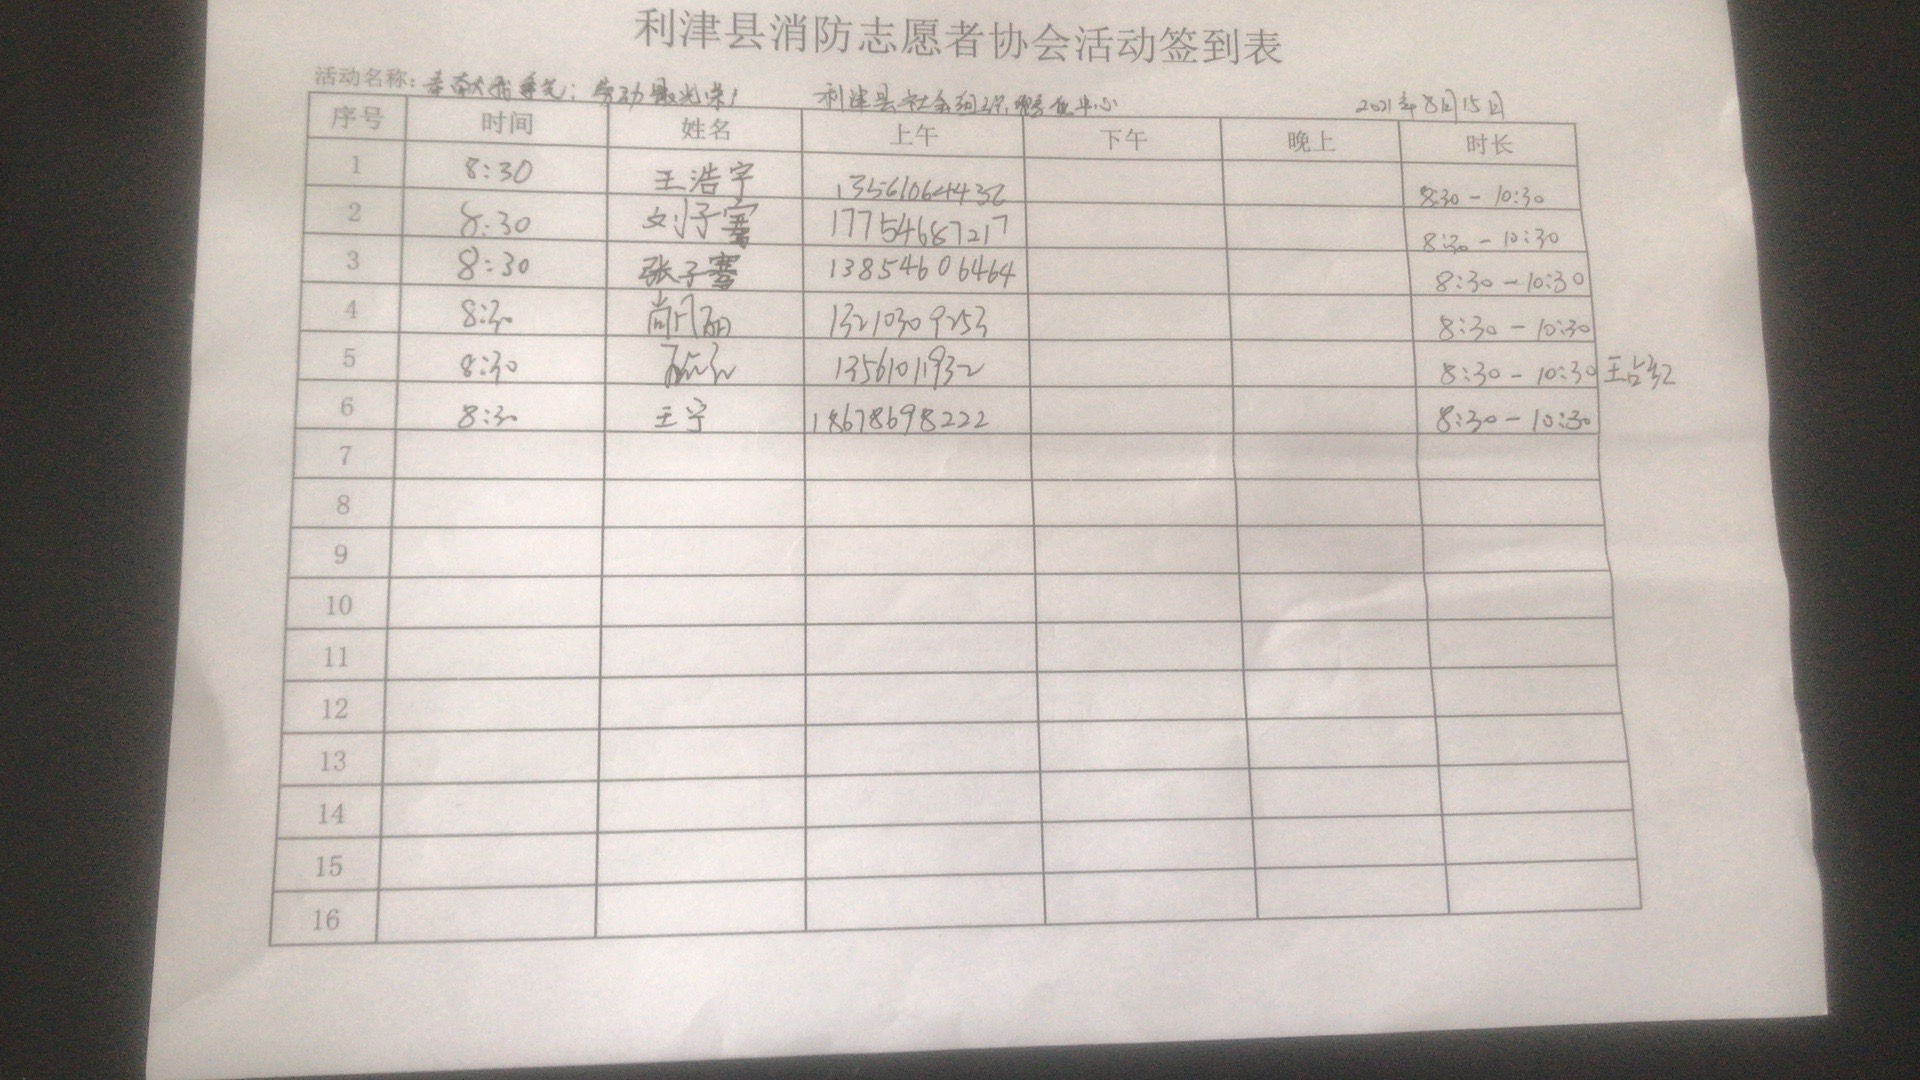 利津县消防志愿者协会活动签到表
活动名称：奉献我争先；劳动最光荣！ 利津县社会组织孵化中心 2021年8月15日
序号 时间 姓名 上午 下午 晚上 时长
1 8:30 王浩宇 13561064432 8:30-10:30
2 8:30 刘子骞 17754687217 8:30-10:30
3 8:30 张子骞 13854606464 8:30-10:30
4 8:30 尚风丽 13210309253 8:30-10:30
5 8:30 13561011932 8:30-10:30 王占红
6 8:30 王宁 18678698222 8:30-10:30
7
8
9
10
11
12
13
14
15
16